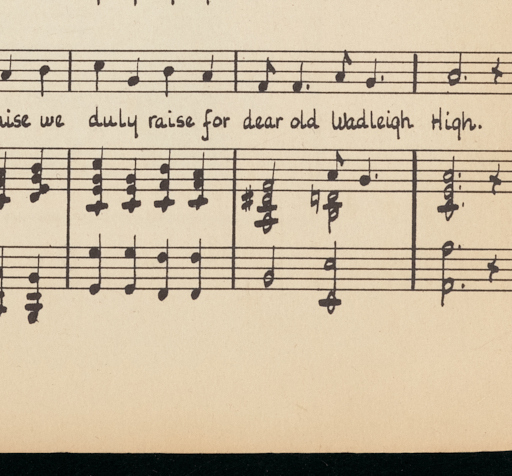 we duly raise for dear old Wadleigh High.